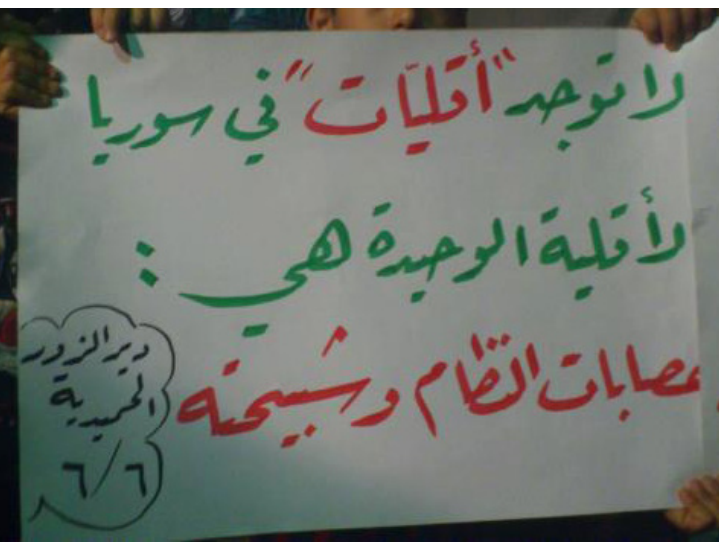 لا توجد "أقليّات" في سوريا
لأقلية الوحيدة هي :
عصابات النظام وشبيحته
دير الزور
الحميدية
٦/٦